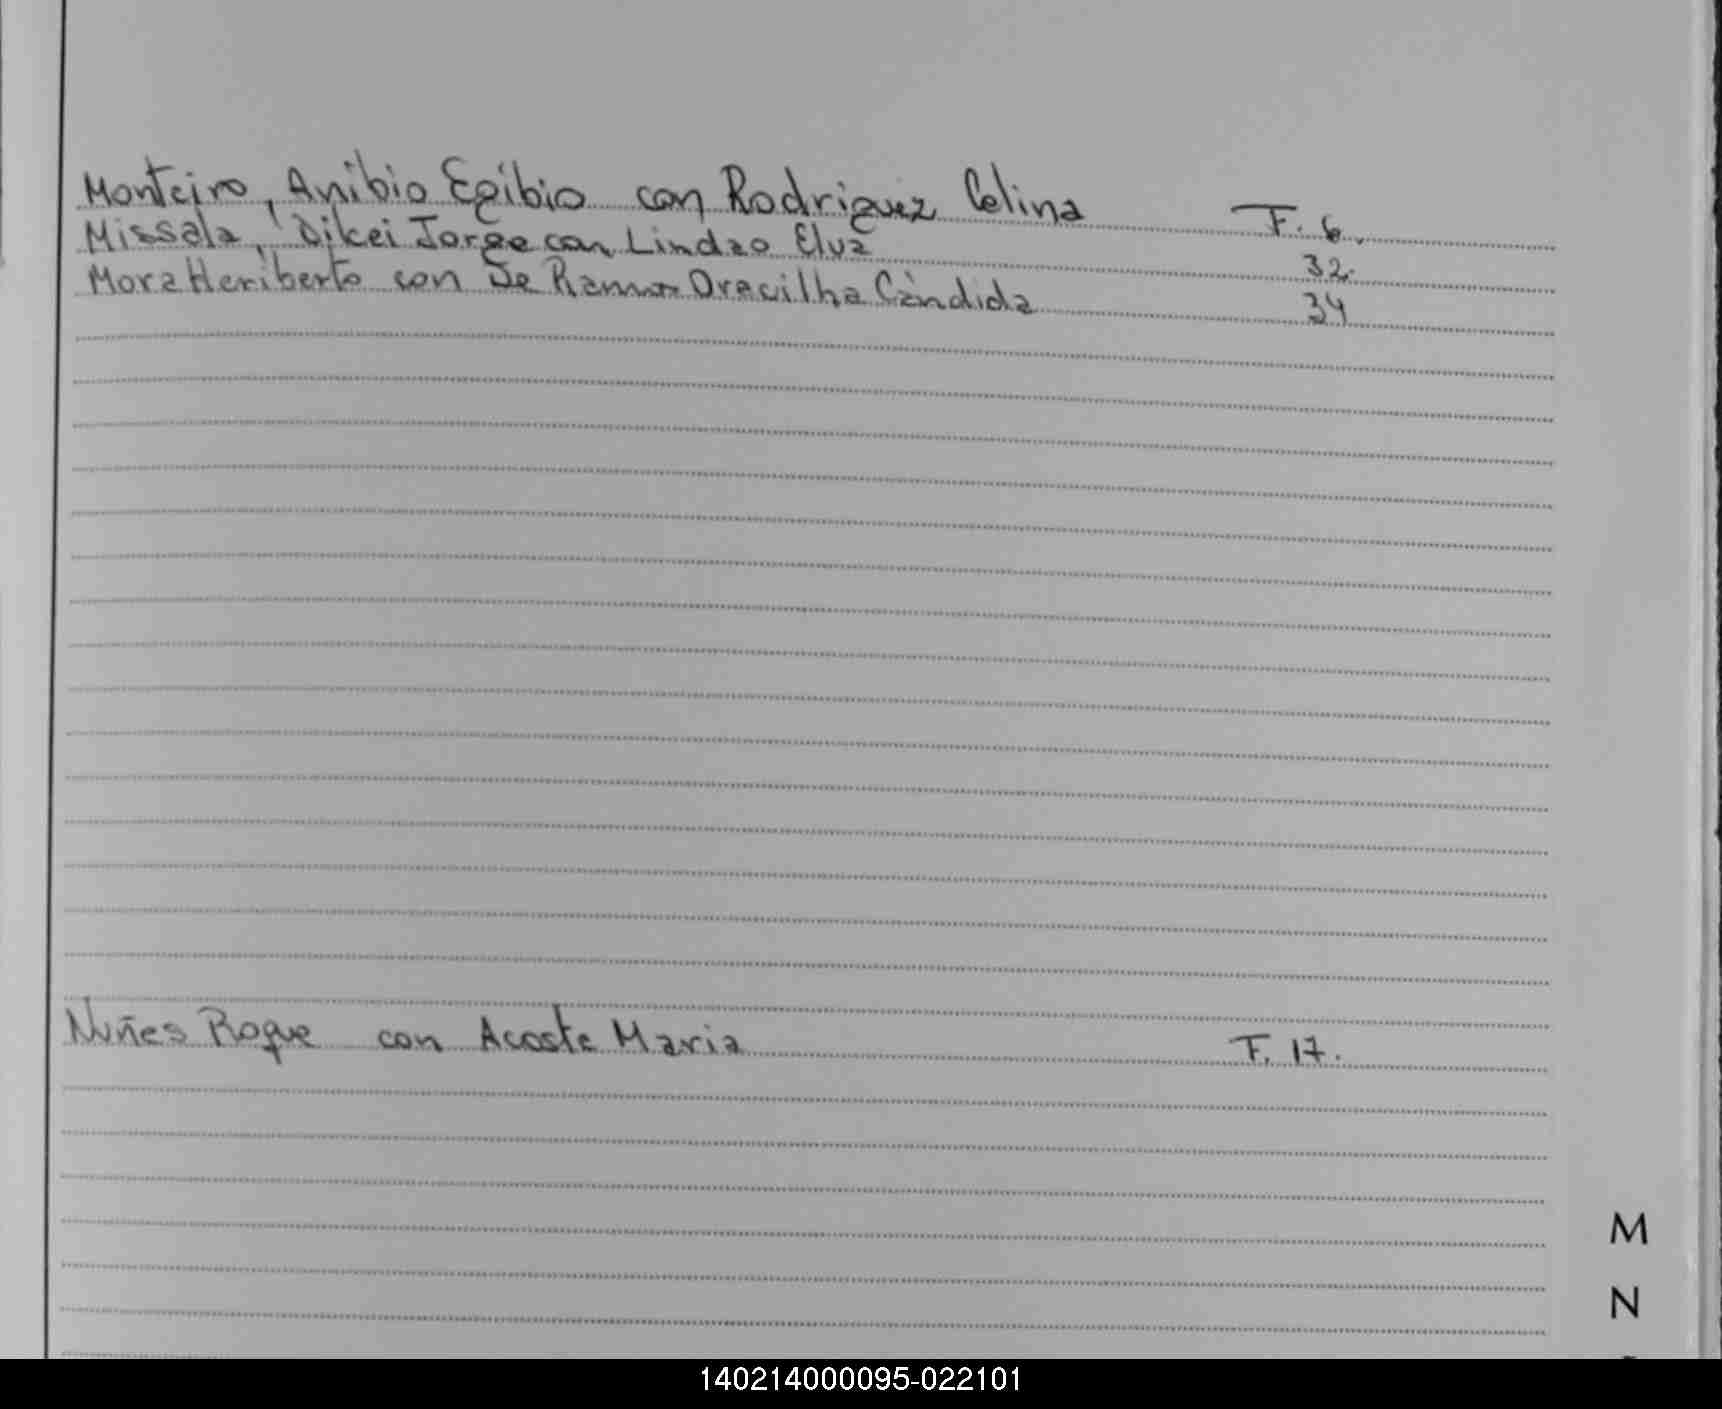 Monteiro, Anibio Egibio con Rodriguez Celina F. 6.
Missala, Dikei Jorge con Lindao Elva 32.
Mora Heriberto con De Ramos Oracilha Cándida 34
Nuñes Roque con Acosta Maria F. 17.
M
N
140214000095-022101